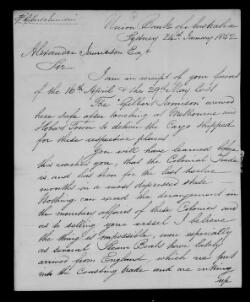 Union Bank of Australia
Sydney 24th January 1842
Alexander Jamieson Esqr
Sir
I am in receipt of your favors
of the 16th April & the 29th May last
The "Gilbert Jamison" arrived
here safe after touching at Melbourne and
Hobart Town to deliver the Cargo shipped
for these respective places
You will have learned before
this reaches you, that the Colonial Trade
is and has been for the last twelve
months in a most depressed state
Nothing can exceed the derangement in
the monetary affairs of these Colonies and
as to selling your vessel I believe the
thing is impossible, more especially
as several Steam Boats have lately
arrived from England which are put
into the Coasting trade and are